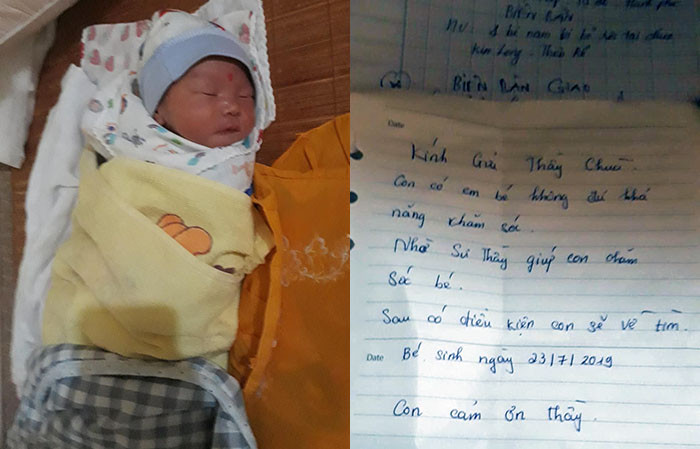 BIÊN BẢN
BIÊN BẢN GIAO
Date
Kính Gửi Thầy Chùa.
Con có em bé không đủ khả
năng chăm sóc.
Nhờ Sư Thầy giúp con chăm
sóc bé.
Sau có điều kiện con sẽ về tìm.
Date Bé sinh ngày 23/7/2019
Con cám ơn thầy.